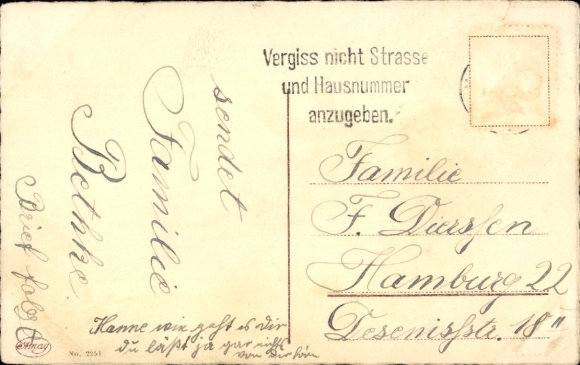 Vergiss nicht Strasse
und Hausnummer
anzugeben.
sendet
Familie
Bethke
Brief folgt
Familie
F. Dierssen
Hamburg 22
Desenissstr. 18 II
Hanne wie geht es Dir
du läßt ja gar nichts
von Dir hören
Amag
No. 2251